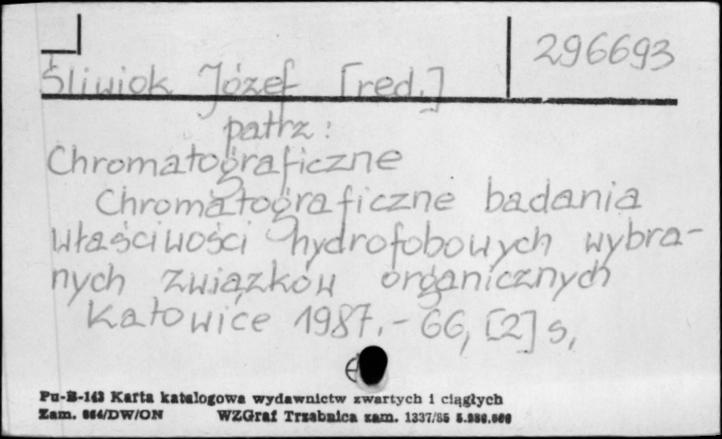 296693
Śliwiok Józef [red.]
patrz:
Chromatograficzne
Chromatograficzne badania
właściwości hydrofobowych wybra-
nych związków organicznych
Katowice 1987.- 66, [2] s,
Pu-B-143 Karta katalogowa wydawnictw zwartych i ciągłych
Zam. 864/DW/ON WZGraf Trzebnica zam. 1337/85